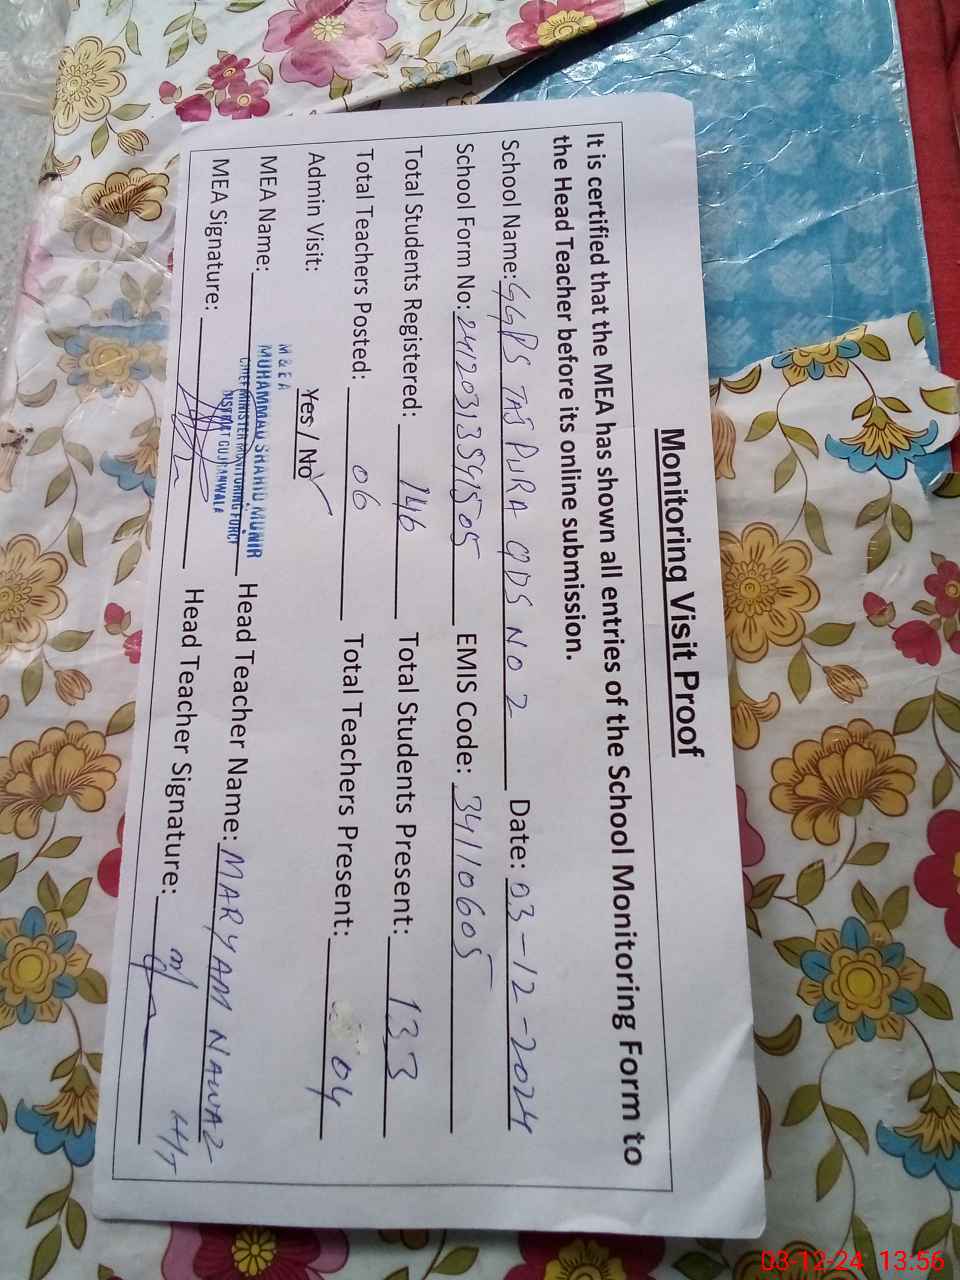 Monitoring Visit Proof
It is certified that the MEA has shown all entries of the School Monitoring Form to
the Head Teacher before its online submission.
School Name: GGPS TAJ PURA QDS NO 2 Date: 03-12-2024
School Form No: EMIS Code: 34110605
Total Students Registered: 146 Total Students Present: 133
Total Teachers Posted: 06 Total Teachers Present: 04
Admin Visit: Yes / No
M & E A
MUHAMMAD SHAHID MUNIR
CHIEF MINISTER MONITORING FORCE
DISTRICT GUJRANWALA
MEA Name: Head Teacher Name: MARYAM NAWAZ
MEA Signature: Head Teacher Signature:
03-12-24 13:56